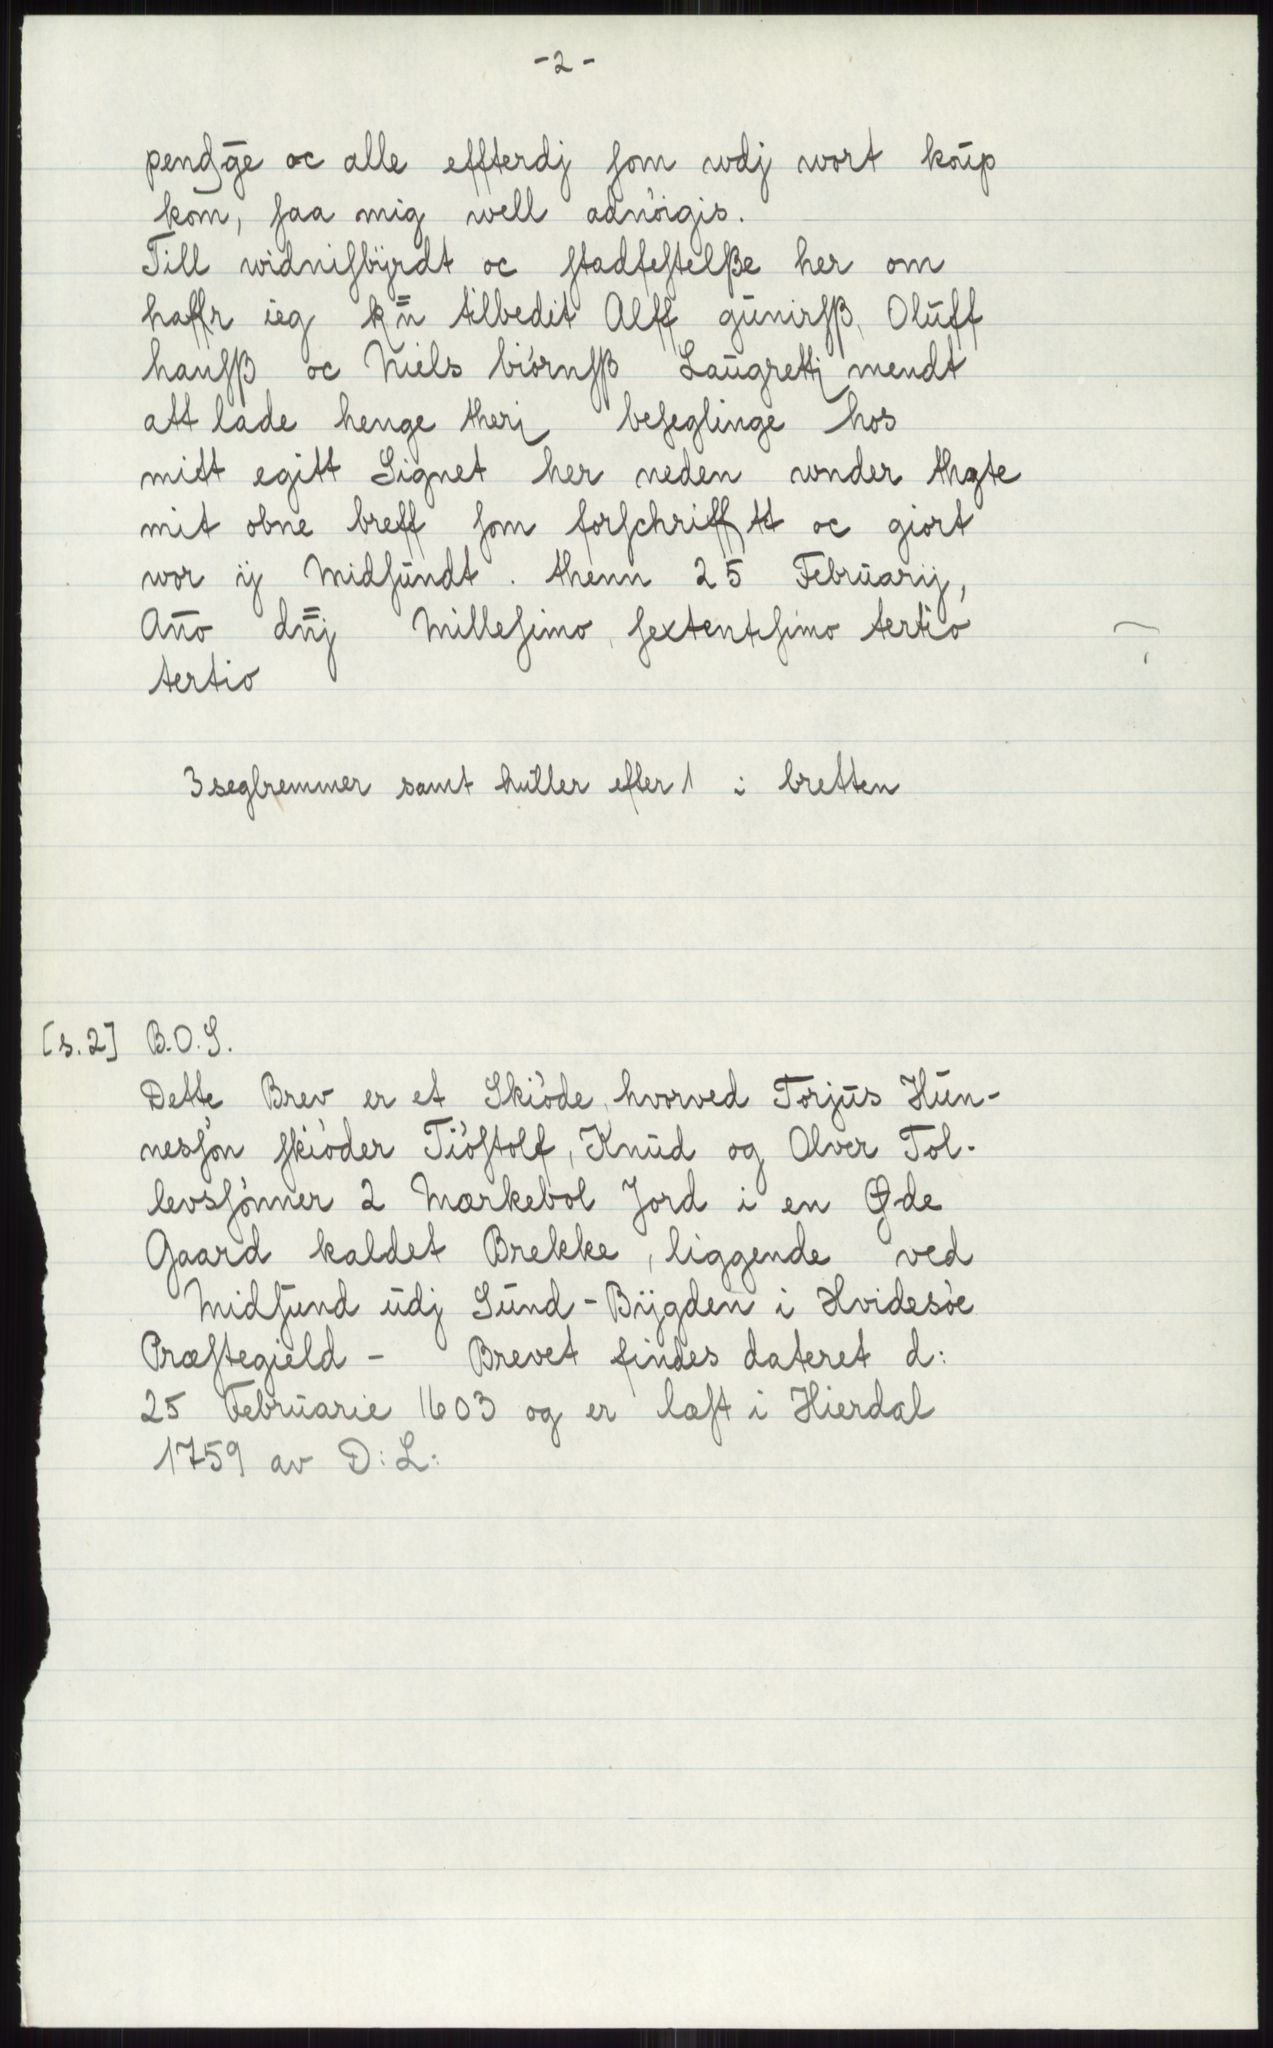 -2-
pendgē oc alle effterdj som wdj wort koup
kom, saa mig well adnöigis.
Till widnisbÿrdt oc stadfestelße her om
haffr ieg kn̄ tilbedit Alff gunirsß, Oluff
hansß oc Niels biörnsß Laugrettj mendt
att lade henge therj beseglinge hos
mitt egitt Signet her neden wnder thgte
mit obne breff som forschrifftt oc giort
wor ij Midsundt. thenn 25 Februarij,
Año dn̄j Millesimo, sextentsimo tertio
tertio
3 seglremmer samt huller efter 1 i bretten
[s.2] B.O.S.
Dette Brev er et Skiöde, hvorved Torjus Hun-
nessön skiöder Tiöstolf, Knud og Olver Tol-
levssönner 2 Mærkebol Jord i en Øde
Gaard kaldet Brekke, liggende ved
Midsund udj Sund-Bÿgden i Hvidesöe
Præstegield - Brevet findes dateret d:
25 Februarie 1603 og er læst i Hierdal
1759 av D:L: